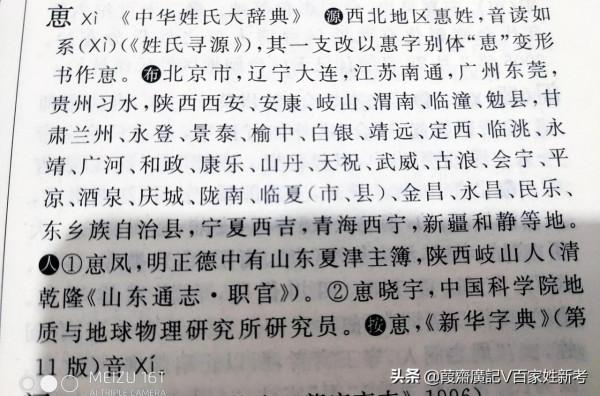 恴 Xì 《中华姓氏大辞典》 源西北地区惠姓,音读如
系(Xì)(《姓氏寻源》),其一支改以惠字别体“恵”变形
书作恴。布北京市,辽宁大连,江苏南通,广州东莞,
贵州习水,陕西西安、安康、岐山、渭南、临潼、勉县,甘
肃兰州、永登、景泰、榆中、白银、靖远、定西、临洮、永
靖、广河、和政、康乐、山丹、天祝、武威、古浪、会宁、平
凉、酒泉、庆城、陇南、临夏(市、县)、金昌、永昌、民乐、
东乡族自治县,宁夏西吉,青海西宁,新疆和静等地。
人①恴凤,明正德中有山东夏津主簿,陕西岐山人(清
乾隆《山东通志·职官》)。②恴晓宇,中国科学院地
质与地球物理研究所研究员。按恴,《新华字典》(第
11版)音Xí。
MEIZU 16T
AI TRIPLE CAMERA
头条 @葭齋廣記V百家姓新考